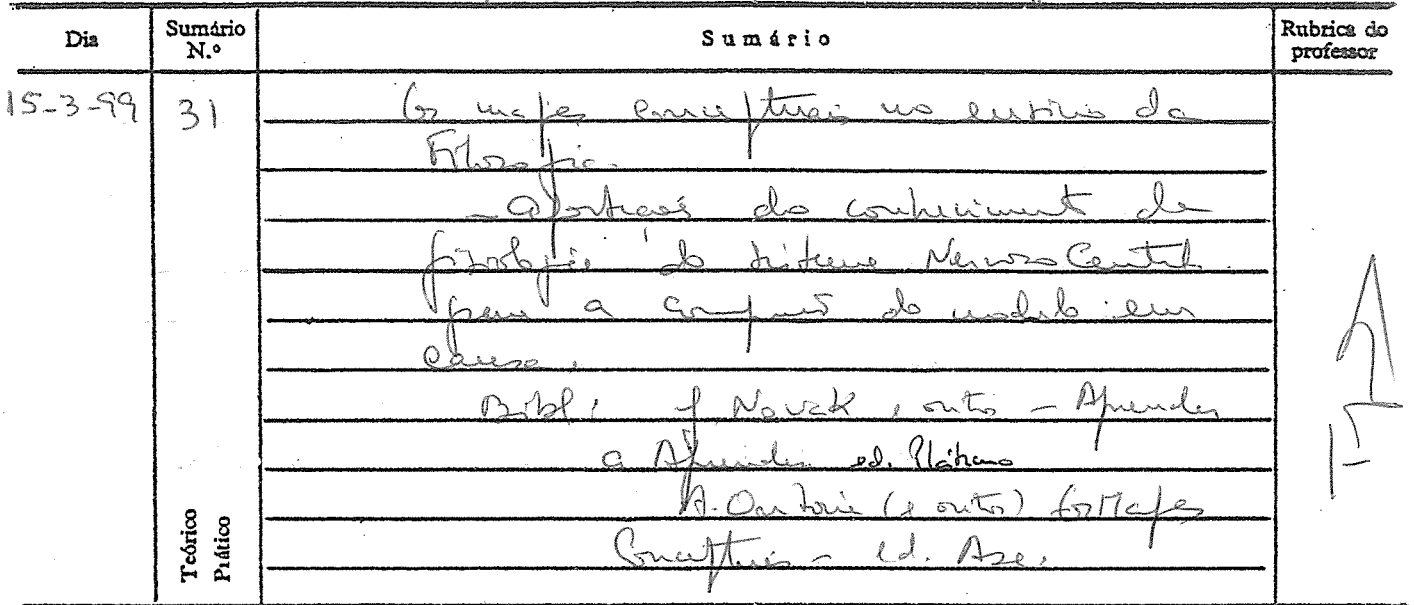 Dia
Sumário N.º
Sumário
Rubrica do professor
15-3-99
31
Os mapas conceptuais no ensino da
Filosofia.
- do conhecimento da
fisiologia do sistema Nervoso Central
para a do modelo em
causa.
Bibl: J Novak, outro - Aprender
a Aprender ed. Plátano
A. Ontoria (e outros) Os Mapas
Conceptuais - ed. Asa.
Teórico
Prático